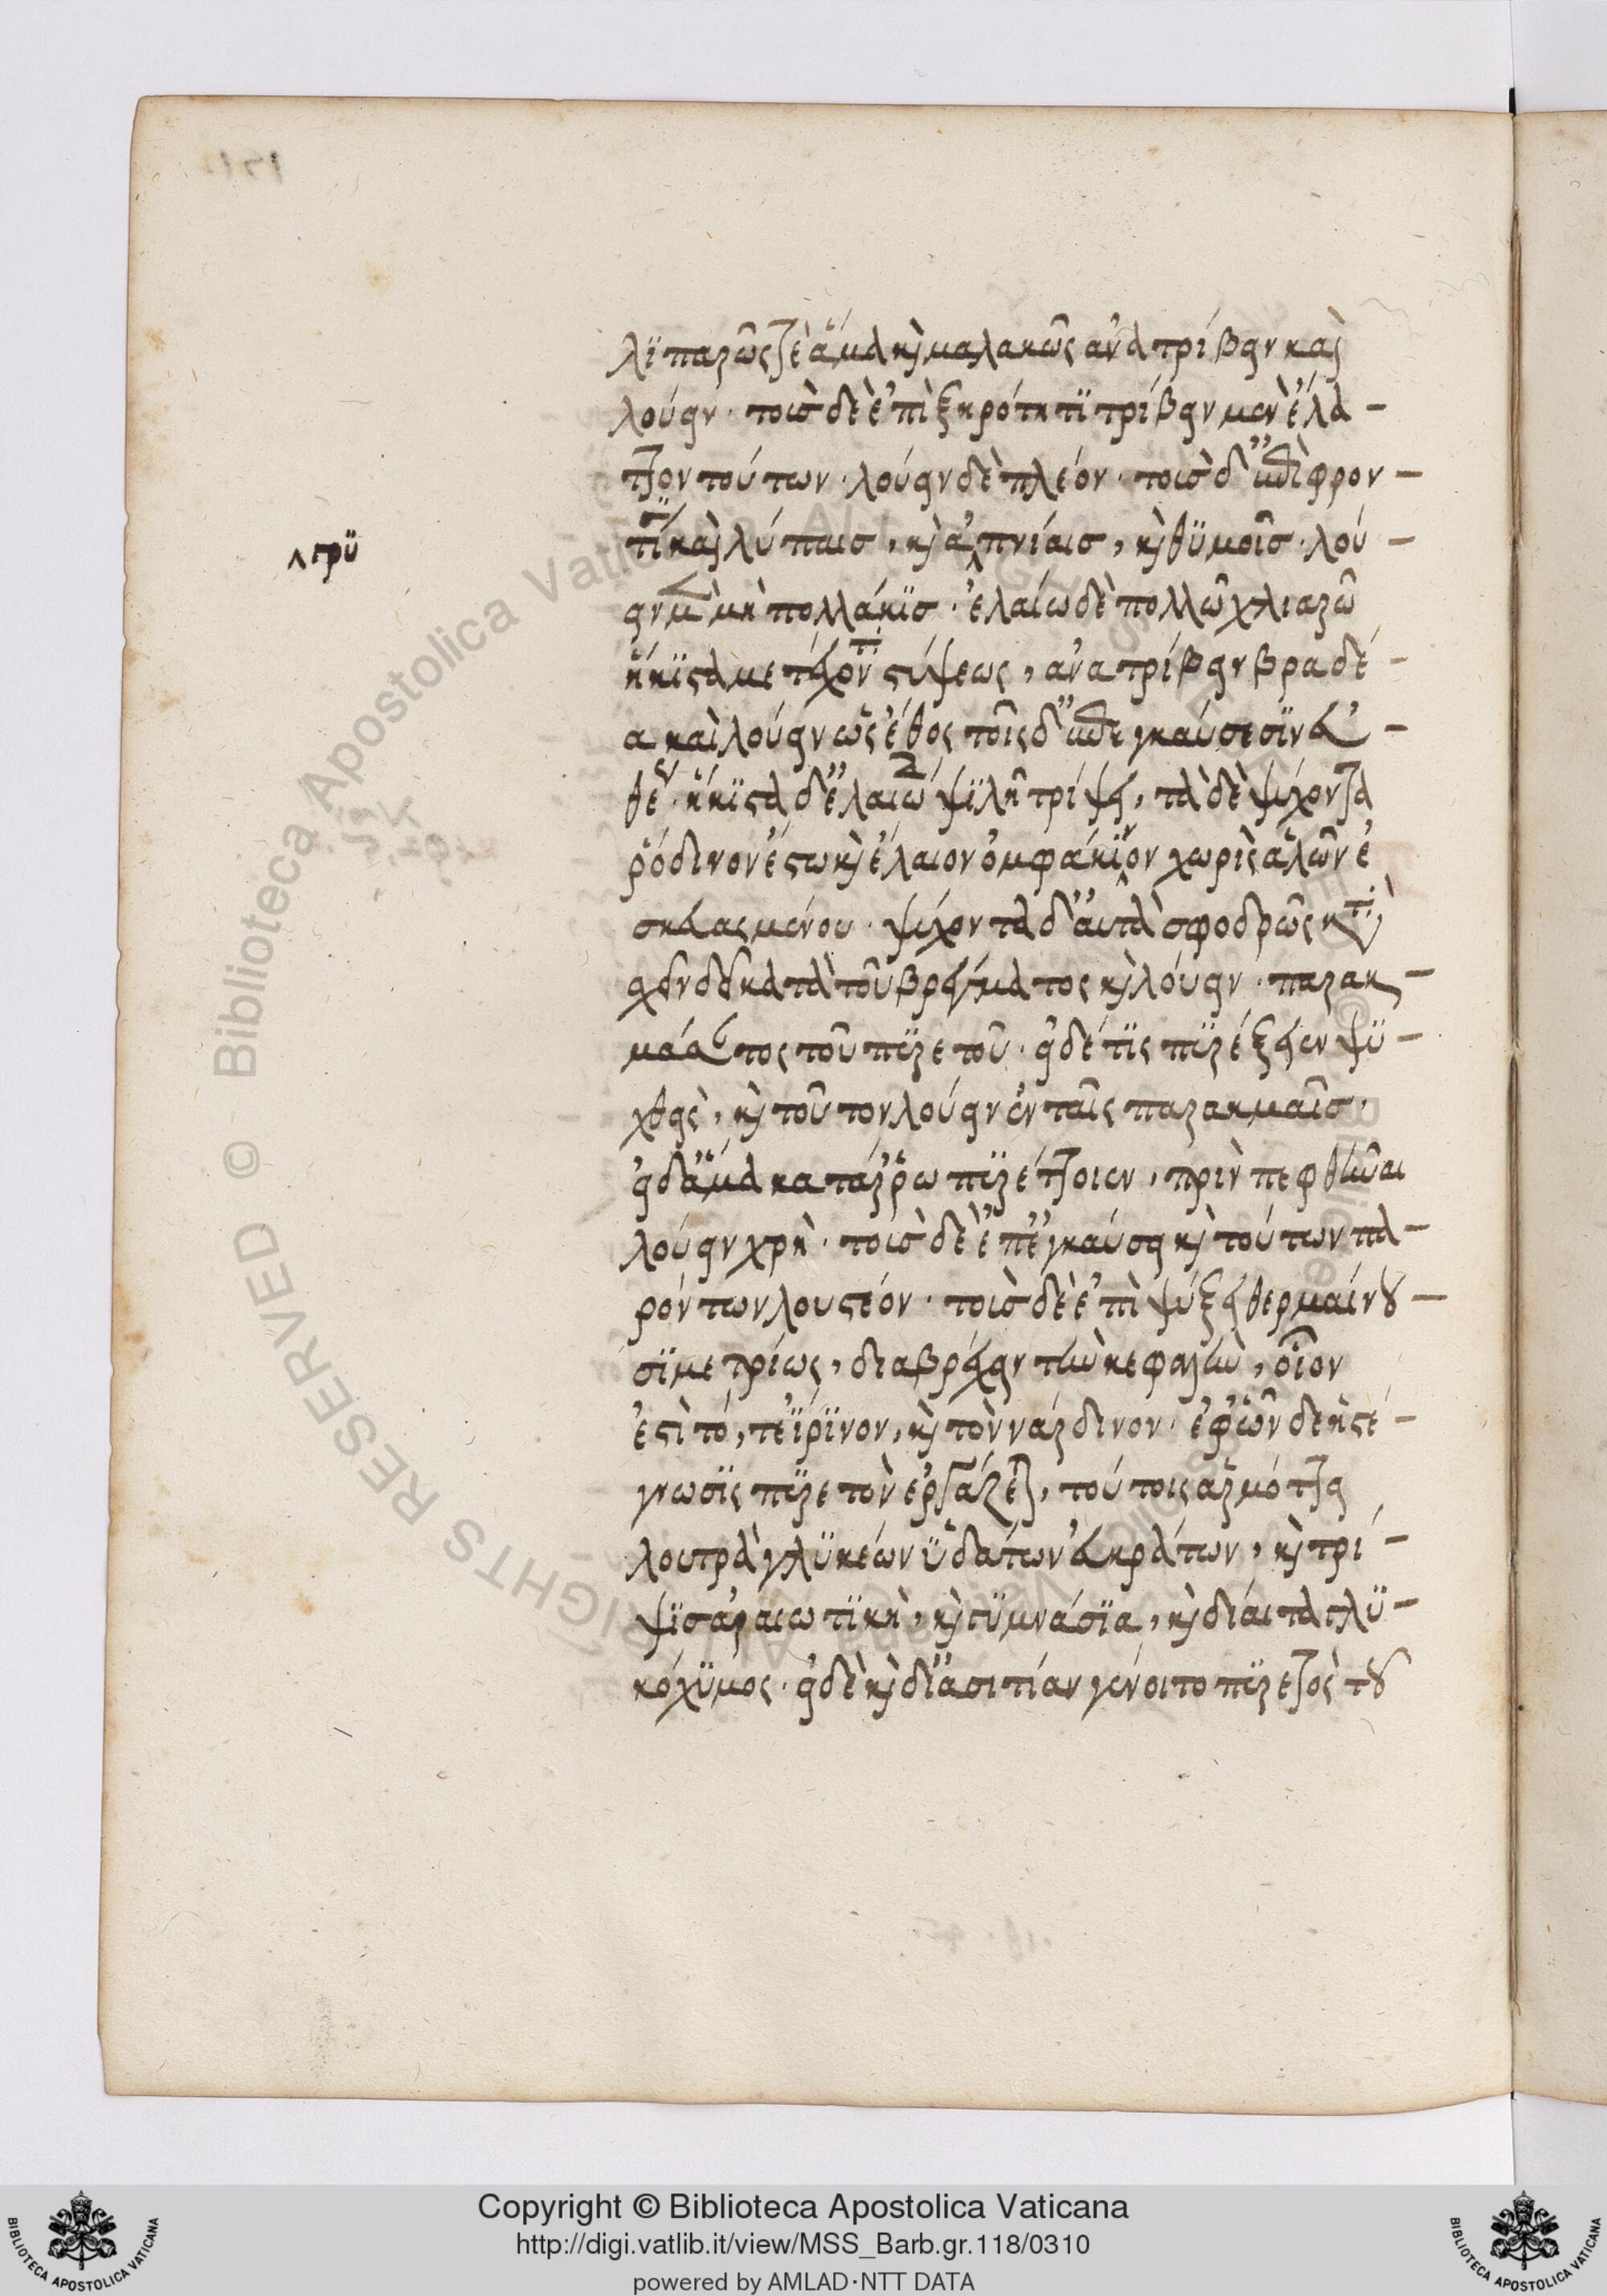 λϊπαρῶς τὲ ἅμα κὶ μαλακῶς ἀνατρίβειν καὶ
λούειν. τοῖσ δὲ ἐπὶ ξηρότητϊ τρίβειν μὲν ἔλα -
ττον τούτων. λούειν δὲ πλέον. τοῖσ δ' ἐπὶ φρον -
τίσϊ καὶ λύπαισ, κὶ ἀπνίαισ, κὶ θϋμοῖσ. λού -
^γρϋ
ειν μὲν μὴ πολλάκϊσ. ἐλαίω δὲ πολλῶ χλιαρῶ
ἥκϊστα μετέχοντϊ στύψεως, ἀνατρίβειν βραδέ -
α καὶ λούειν ὡς ἔθος τοῖς δ' ἐπ' ἐγκαύσεσϊν
ἥκϊστα δ' ἐλαίω ψϊλῆ τρίψει, τὰ δὲ ψύχοντα
ῥόδινον ἔστω κὶ ἔλαιον ὀμφάκϊνον χωρὶς ἁλῶν ἐ
σκευασμένου. ψύχοντα δ' αὐτὰ σφοδρῶς
κατὰ τοῦ βρέγματος κὶ λούειν. παρακ -
μάσαντος τοῦ πϋρετοῦ. εἰ δέ τϊς πϋρέξειεν ψϋ -
χθεὶς, κὶ τοῦτον λούειν ἐν ταῖς παρακμαῖσ.
εἰ δ' ἅμα κατάρρω πϋρέττοιεν, πρὶν πεφθῆναι
λούειν χρή. τοῖσ δὲ ἐπ' ἐγκαύσει κὶ τούτων πα -
ρόντων λουστέον. τοῖσ δὲ ἐπὶ ψύξει θερμαίνου -
σϊ μετρίως, διαβρέχειν τὴν κεφαλὴν, οἷον
ἐστὶ τό, τε ἴρϊνον, κὶ τὸν νάρδινον. ἐφ' ὧν δὲ ἡ στέ -
γνωσϊς πϋρετὸν ἐργάζεται, τούτοις ἁρμόττει
λουτρὰ γλϋκέων ϋδάτων εὐκράτων, κὶ τρί -
ψϊσ ἀραιωτϊκὴ, κὶ γϋμνάσϊα, κὶ δίαιτα γλϋ -
κόχϋμος. εἰ δὲ κὶ δι' ἀσιτίαν γένοιτο πϋρετὸς του